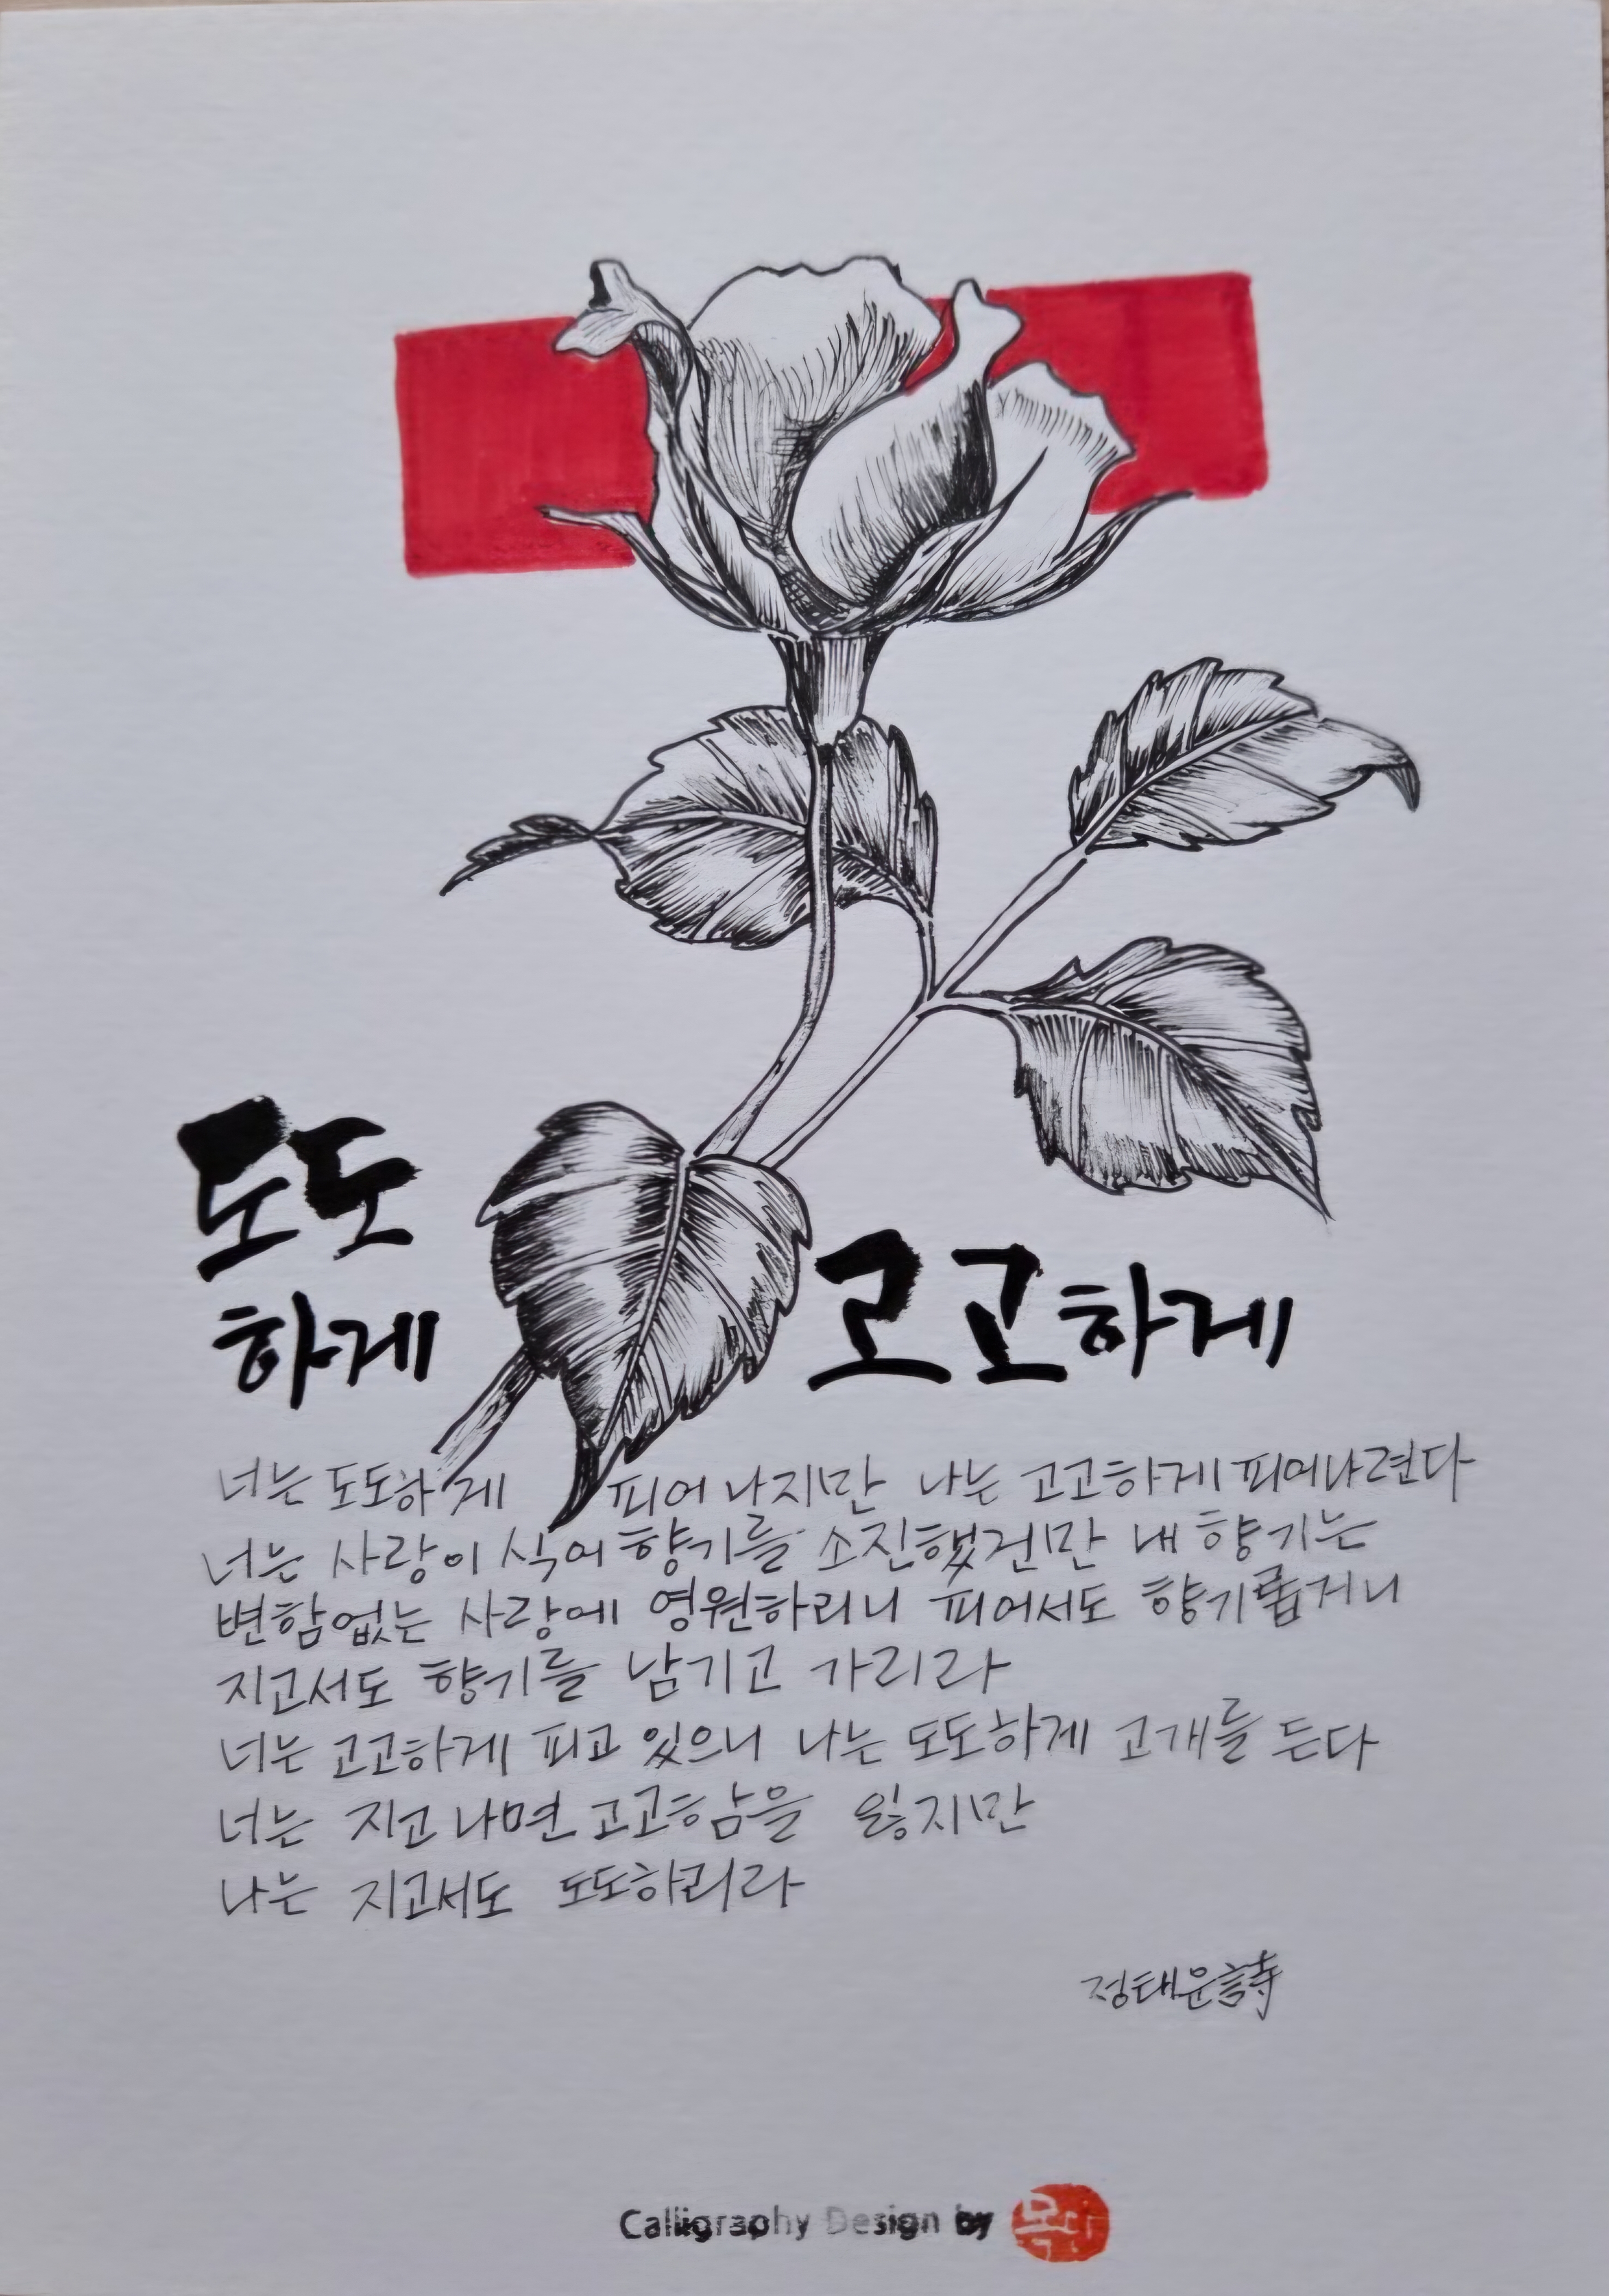 도도
하게
고고하게
너는 도도하게 피어나지만 나는 고고하게 피어나련다
너는 사랑이 식어 향기를 소진했건만 내 향기는
변함없는 사랑에 영원하리니 피어서도 향기롭거니
지고서도 향기를 남기고 가리라
너는 고고하게 피고 있으니 나는 도도하게 고개를 든다
너는 지고나면 고고함을 잃지만
나는 지고서도 도도하리라
정태운 詩
Calligraphy Design by